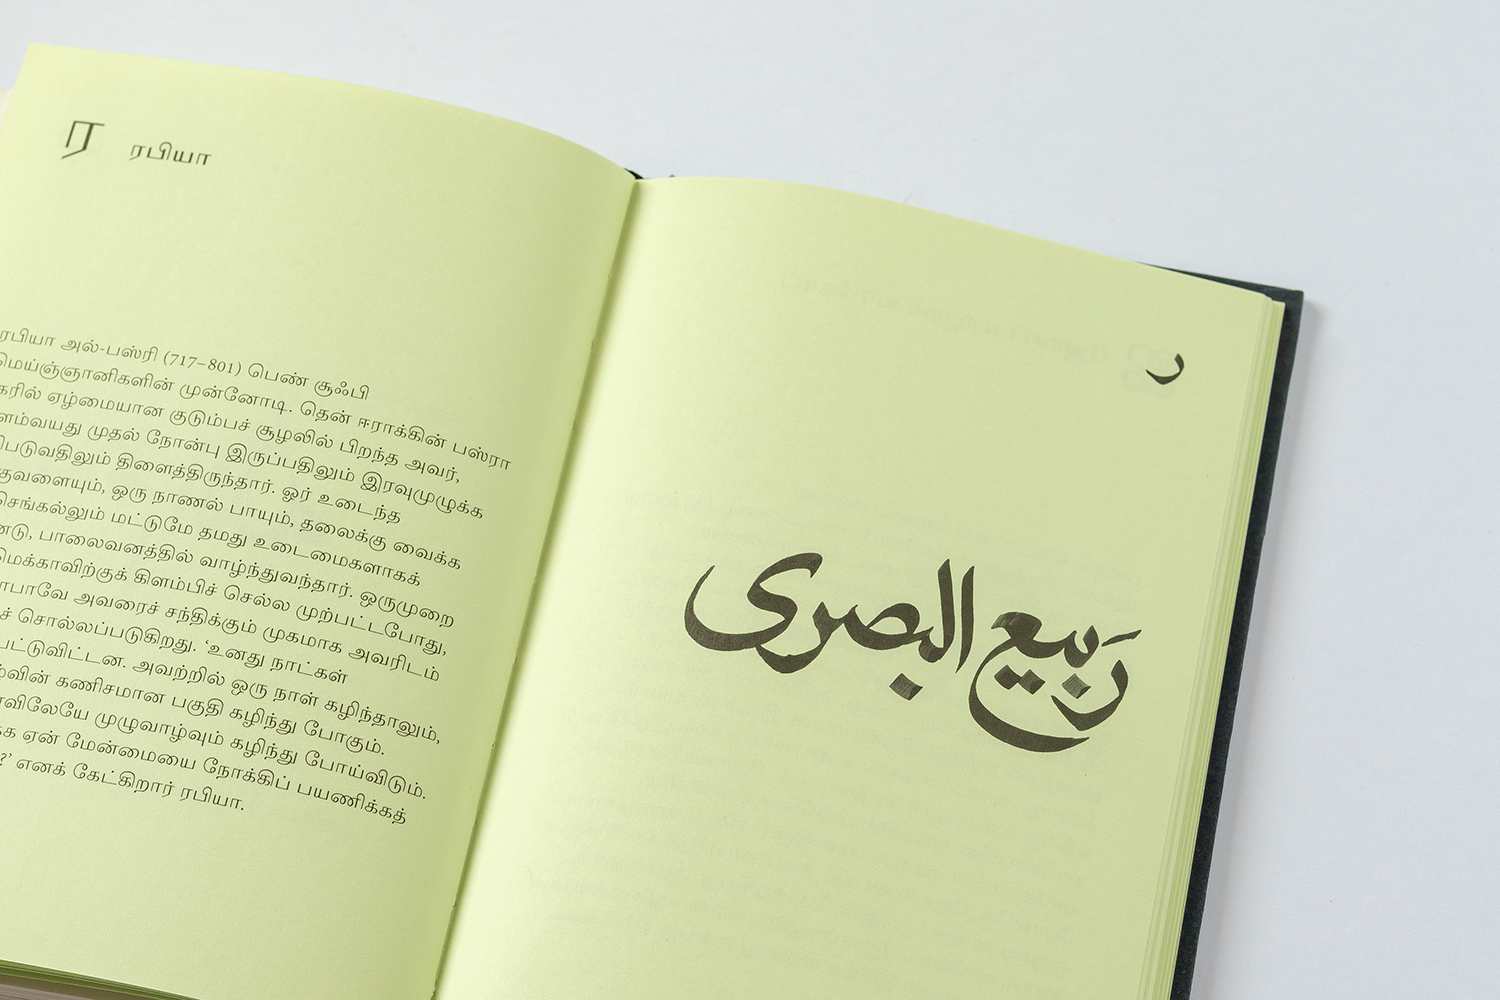 ர ரபியா
ரபியா அல்-பஸ்ரி (717–801) பெண் சூஃபி
மெய்ஞ்ஞானிகளின் முன்னோடி. தென் ஈராக்கின் பஸ்ரா
ஏழ்மையான குடும்பச் சூழலில் பிறந்த அவர்,
முதல் நோன்பு இருப்பதிலும் இரவுமுழுக்க
திளைத்திருந்தார். ஓர் உடைந்த
ஒரு நாணல் பாயும், தலைக்கு வைக்க
மட்டுமே தமது உடைமைகளாகக்
பாலைவனத்தில் வாழ்ந்துவந்தார். ஒருமுறை
மெக்காவிற்குக் கிளம்பிச் செல்ல முற்பட்டபோது,
அவரைச் சந்திக்கும் முகமாக அவரிடம்
சொல்லப்படுகிறது. ‘உனது நாட்கள்
அவற்றில் ஒரு நாள் கழிந்தாலும்,
கணிசமான பகுதி கழிந்து போகும்.
முழுவாழ்வும் கழிந்து போய்விடும்.
ஏன் மேன்மையை நோக்கிப் பயணிக்கத்
?’ எனக் கேட்கிறார் ரபியா.
ر
رَبيع البصرى